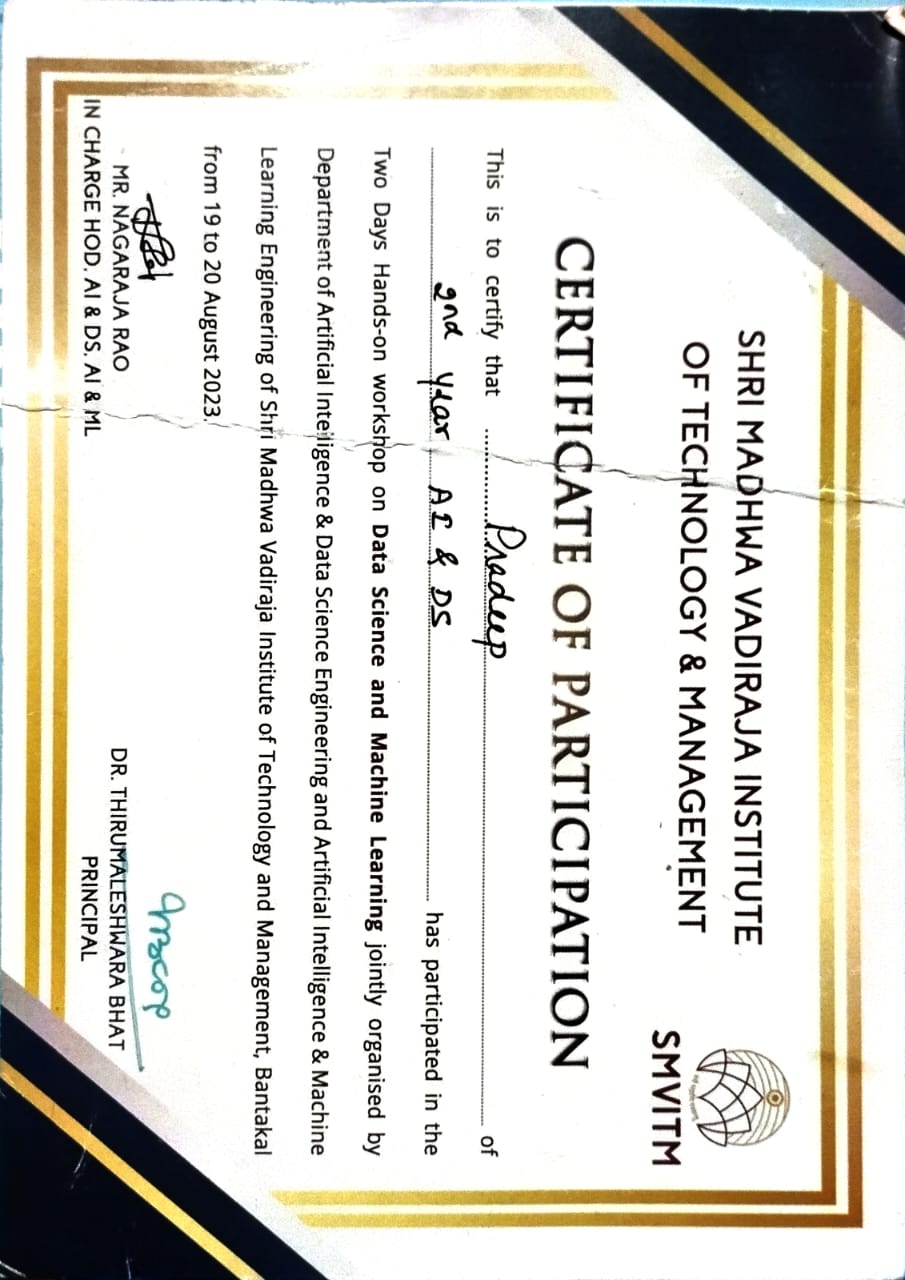 SHRI MADHWA VADIRAJA INSTITUTE
OF TECHNOLOGY & MANAGEMENT
SMVITM
CERTIFICATE OF PARTICIPATION
This is to certify that Pradeep of
2nd Year AI & DS has participated in the
Two Days Hands-on workshop on Data Science and Machine Learning jointly organised by
Department of Artificial Intelligence & Data Science Engineering and Artificial Intelligence & Machine
Learning Engineering of Shri Madhwa Vadiraja Institute of Technology and Management, Bantakal
from 19 to 20 August 2023.
MR. NAGARAJA RAO
IN CHARGE HOD. AI & DS. AI & ML
DR. THIRUMALESHWARA BHAT
PRINCIPAL